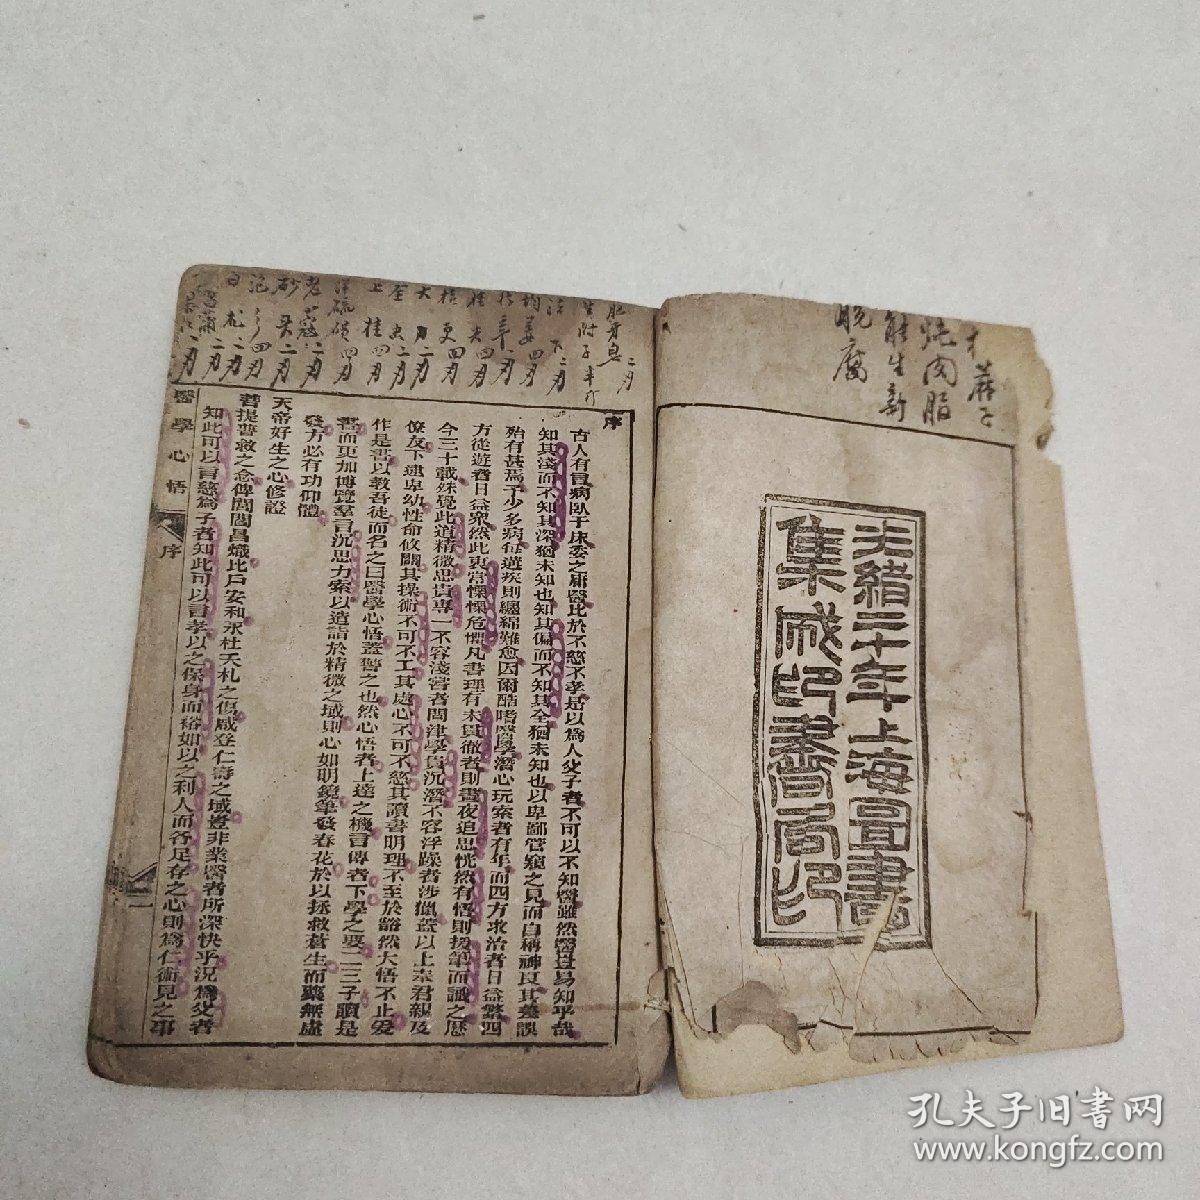 光緒二十年上海圖書
集成印書局印
蓖
燒肉脂
能生新
脫腐
序
古人有言病臥于床委之庸醫比於不慈不孝是以為人父子者不可以不知醫雖然醫豈易知乎哉
知其淺而不知其深猶未知也知其偏而不知其全猶未知也以卑鄙管窺之見而自稱神良其差誤
殆有甚焉予少多病每遘疾則纏綿難愈因爾酷嗜醫學潛心玩索者有年而四方求治者日益繁四
方從遊者日益眾然此衷常慄慄危懼凡書理有未貫徹者則晝夜追思恍然有悟則援筆而識之歷
今三十載殊覺此道精微思貴專一不容淺嘗者問津學貴沉潛不容浮躁者涉獵蓋以上奉君親及
僚友下逮卑幼性命攸關其操術不可不工其處心不可不慈其讀書明理不至於豁然大悟不止爰
作是書以教吾徒而名之曰醫學心悟蓋警之也然心悟者上達之機言傳者下學之要二三子讀是
書而更加博覽羣言沉思力索以造詣於精微之域則心如明鏡筆發春花於以拯救蒼生而藥無虛
發方必有功仰體
天帝好生之心修證
菩提普救之念俾閭閻昌熾比戶安和永杜夭札之傷咸登仁壽之域豈非業醫者所深快乎況為父者
知此可以言慈為子者知此可以言孝以之保身而裕如以之利人而各足存之心則為仁術見之事
醫學心悟
序
一
生附子 半斤
均姜 四刃
桂 四刃
大 二刃
上桂 四刃
硫磺 四刃
老蔻 二刃
砂
白
孔夫子旧书网
www.kongfz.com